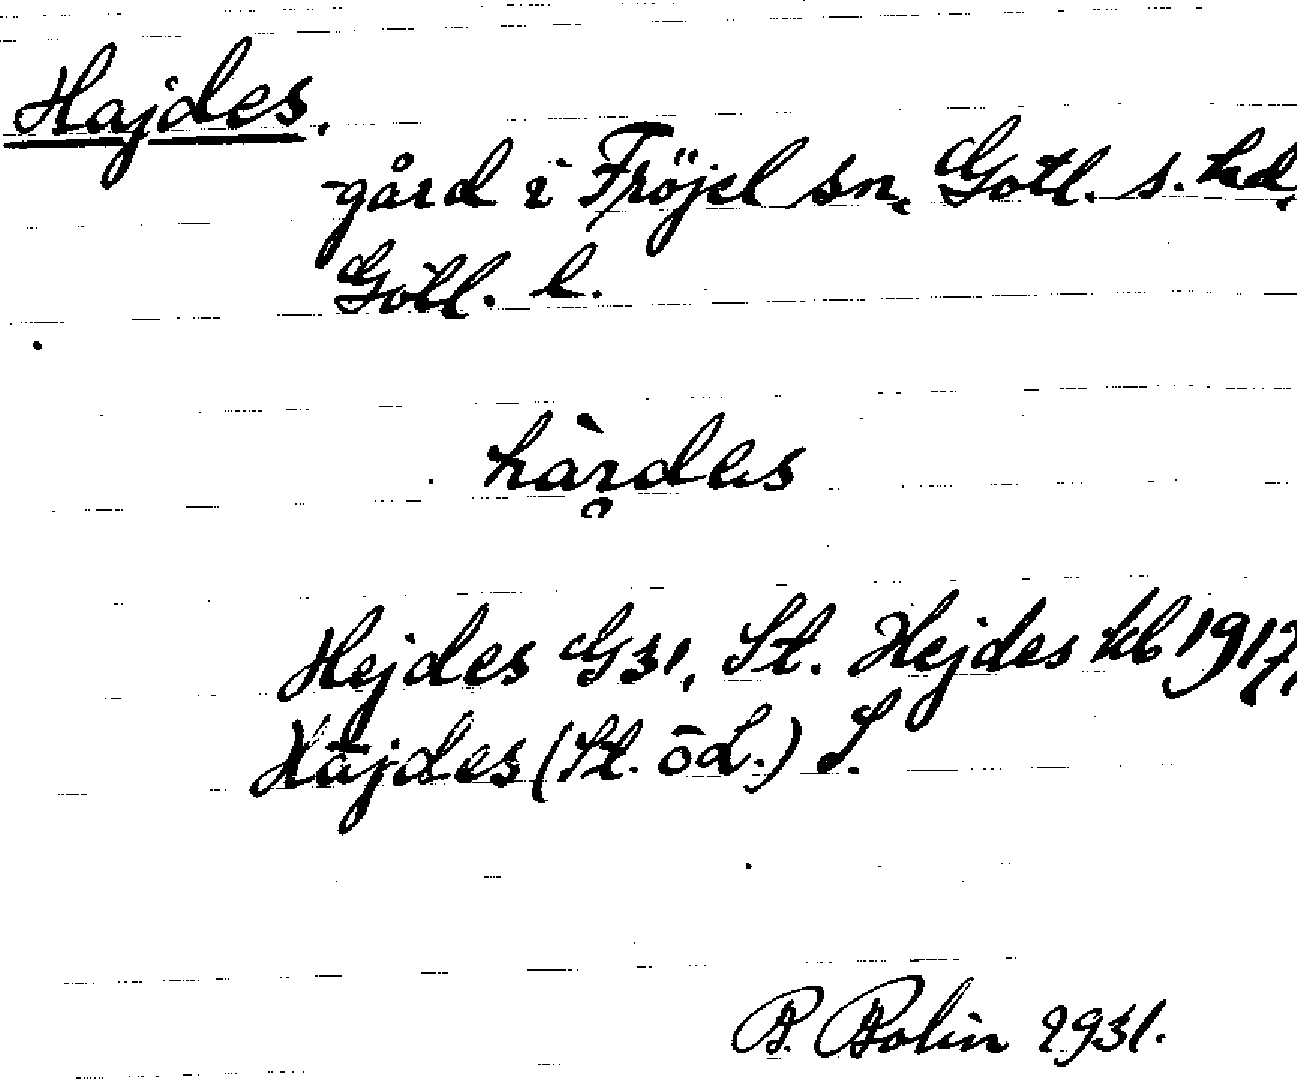 Hajdes.
gård i Fröjel sn, Gotl. s. hd,
Gotl. l.
hàı̯des
Hejdes G31, St. Hejdes kb 1917,
Häjdes (St. öd.) S.
B. Bolin 1931.